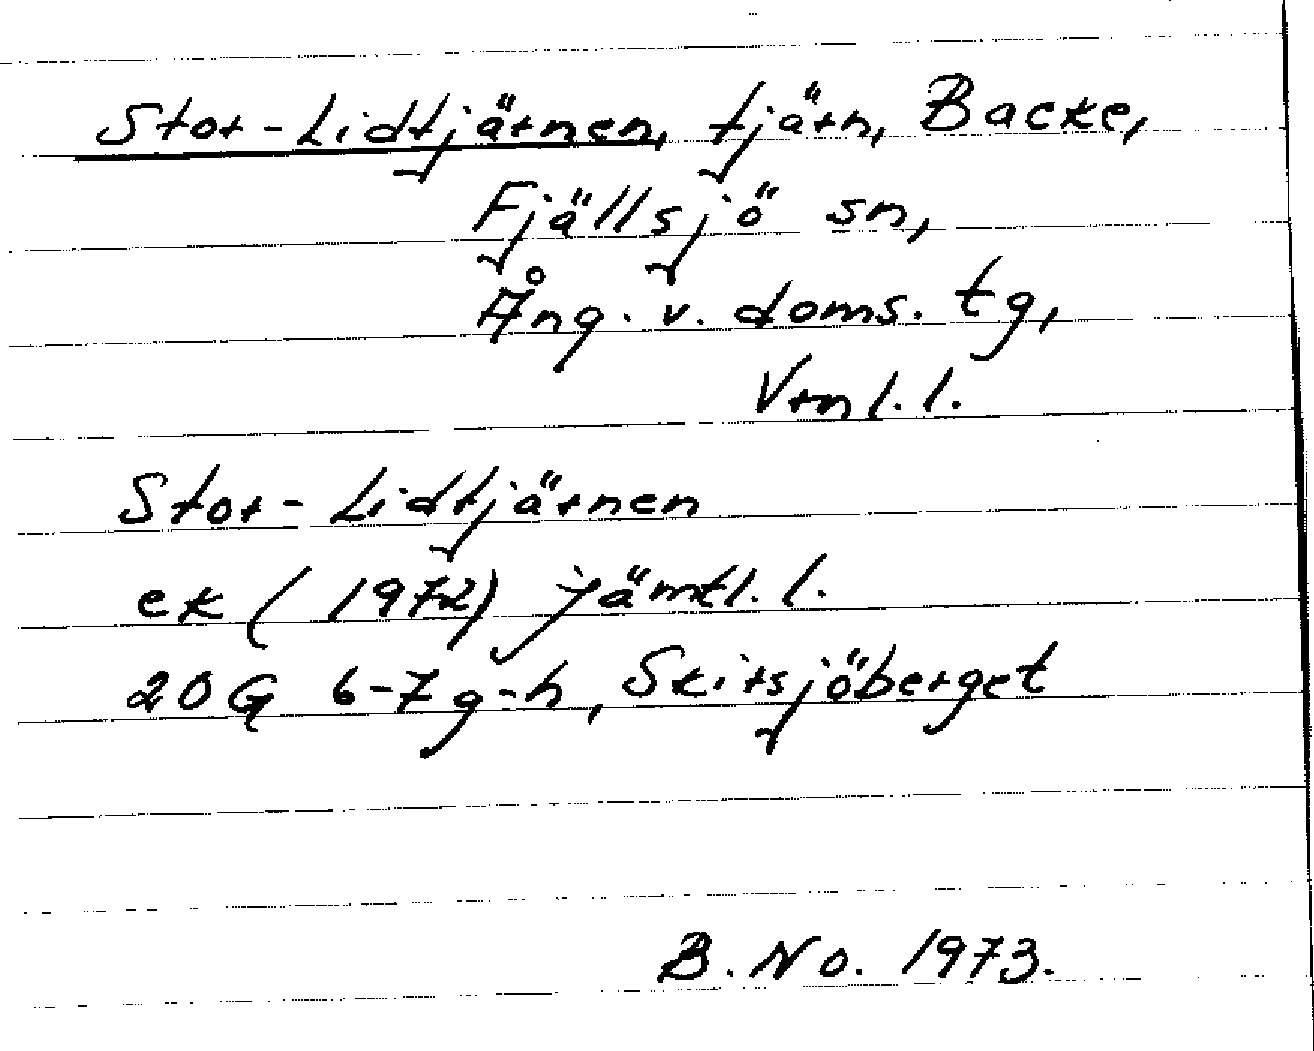 Stor-Lidtjärnen, tjärn, Backe,
Fjällsjö sn,
Ång. v. doms. tg,
Vrnl. l.
Stor-Lidtjärnen
ek (1972) Jämtl. l.
20G 6-7 g-h, Skirsjöberget
B. No. 1973.